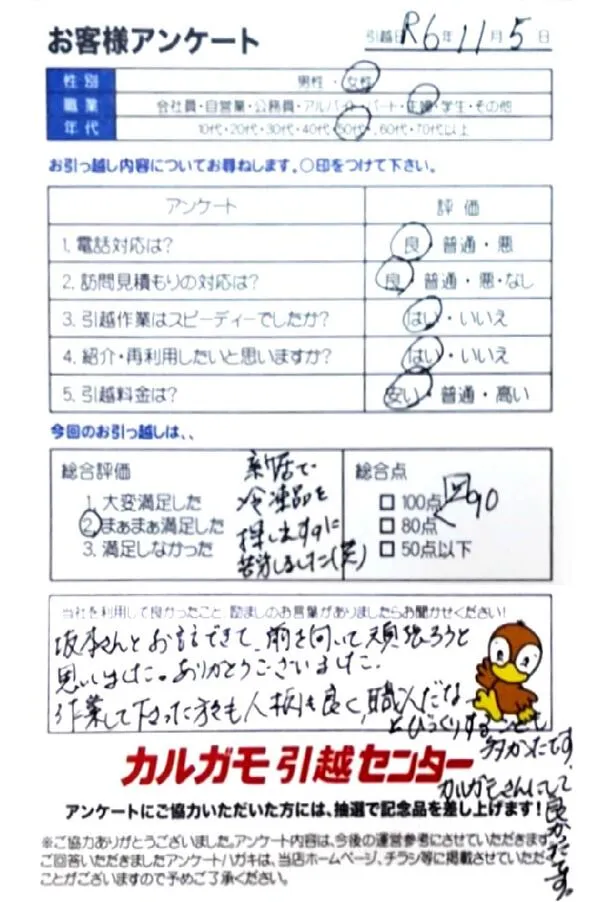 お客様アンケート
引越日 R6年11月5日
性別 男性・女性
職業 会社員・自営業・公務員・アルバイト・パート・主婦・学生・その他
年代 10代・20代・30代・40代・50代・60代・70代以上
お引っ越し内容についてお尋ねします。○印をつけて下さい。
アンケート 評価
1. 電話対応は? 良・普通・悪
2. 訪問見積もりの対応は? 良・普通・悪・なし
3. 引越作業はスピーディーでしたか? はい・いいえ
4. 紹介・再利用したいと思いますか? はい・いいえ
5. 引越料金は? 安い・普通・高い
今回のお引っ越しは、、
総合評価
1. 大変満足した
2. まぁまぁ満足した
3. 満足しなかった
新居で
冷凍品を
探しますのに
苦労しました(笑)
総合点
□ 100点
90
□ 80点
□ 50点以下
当社を利用して良かったこと、励ましのお言葉がありましたらお聞かせください!
坂本さんとお話できて、前を向いて頑張ろうと
思いしました。ありがとうございました。
作業して下さった方々も人柄も良く、職人だな
とびっくりすることも
多かったです。
カルガモさんにして
良かったです。
カルガモ引越センター
アンケートにご協力いただいた方には、抽選で記念品を差し上げます!
※ご協力ありがとうございました。アンケート内容は、今後の運営参考にさせていただきます。
ご回答いただきましたアンケートハガキは、当店ホームページ、チラシ等に掲載させていただ
ことがございますので予めご了承ください。